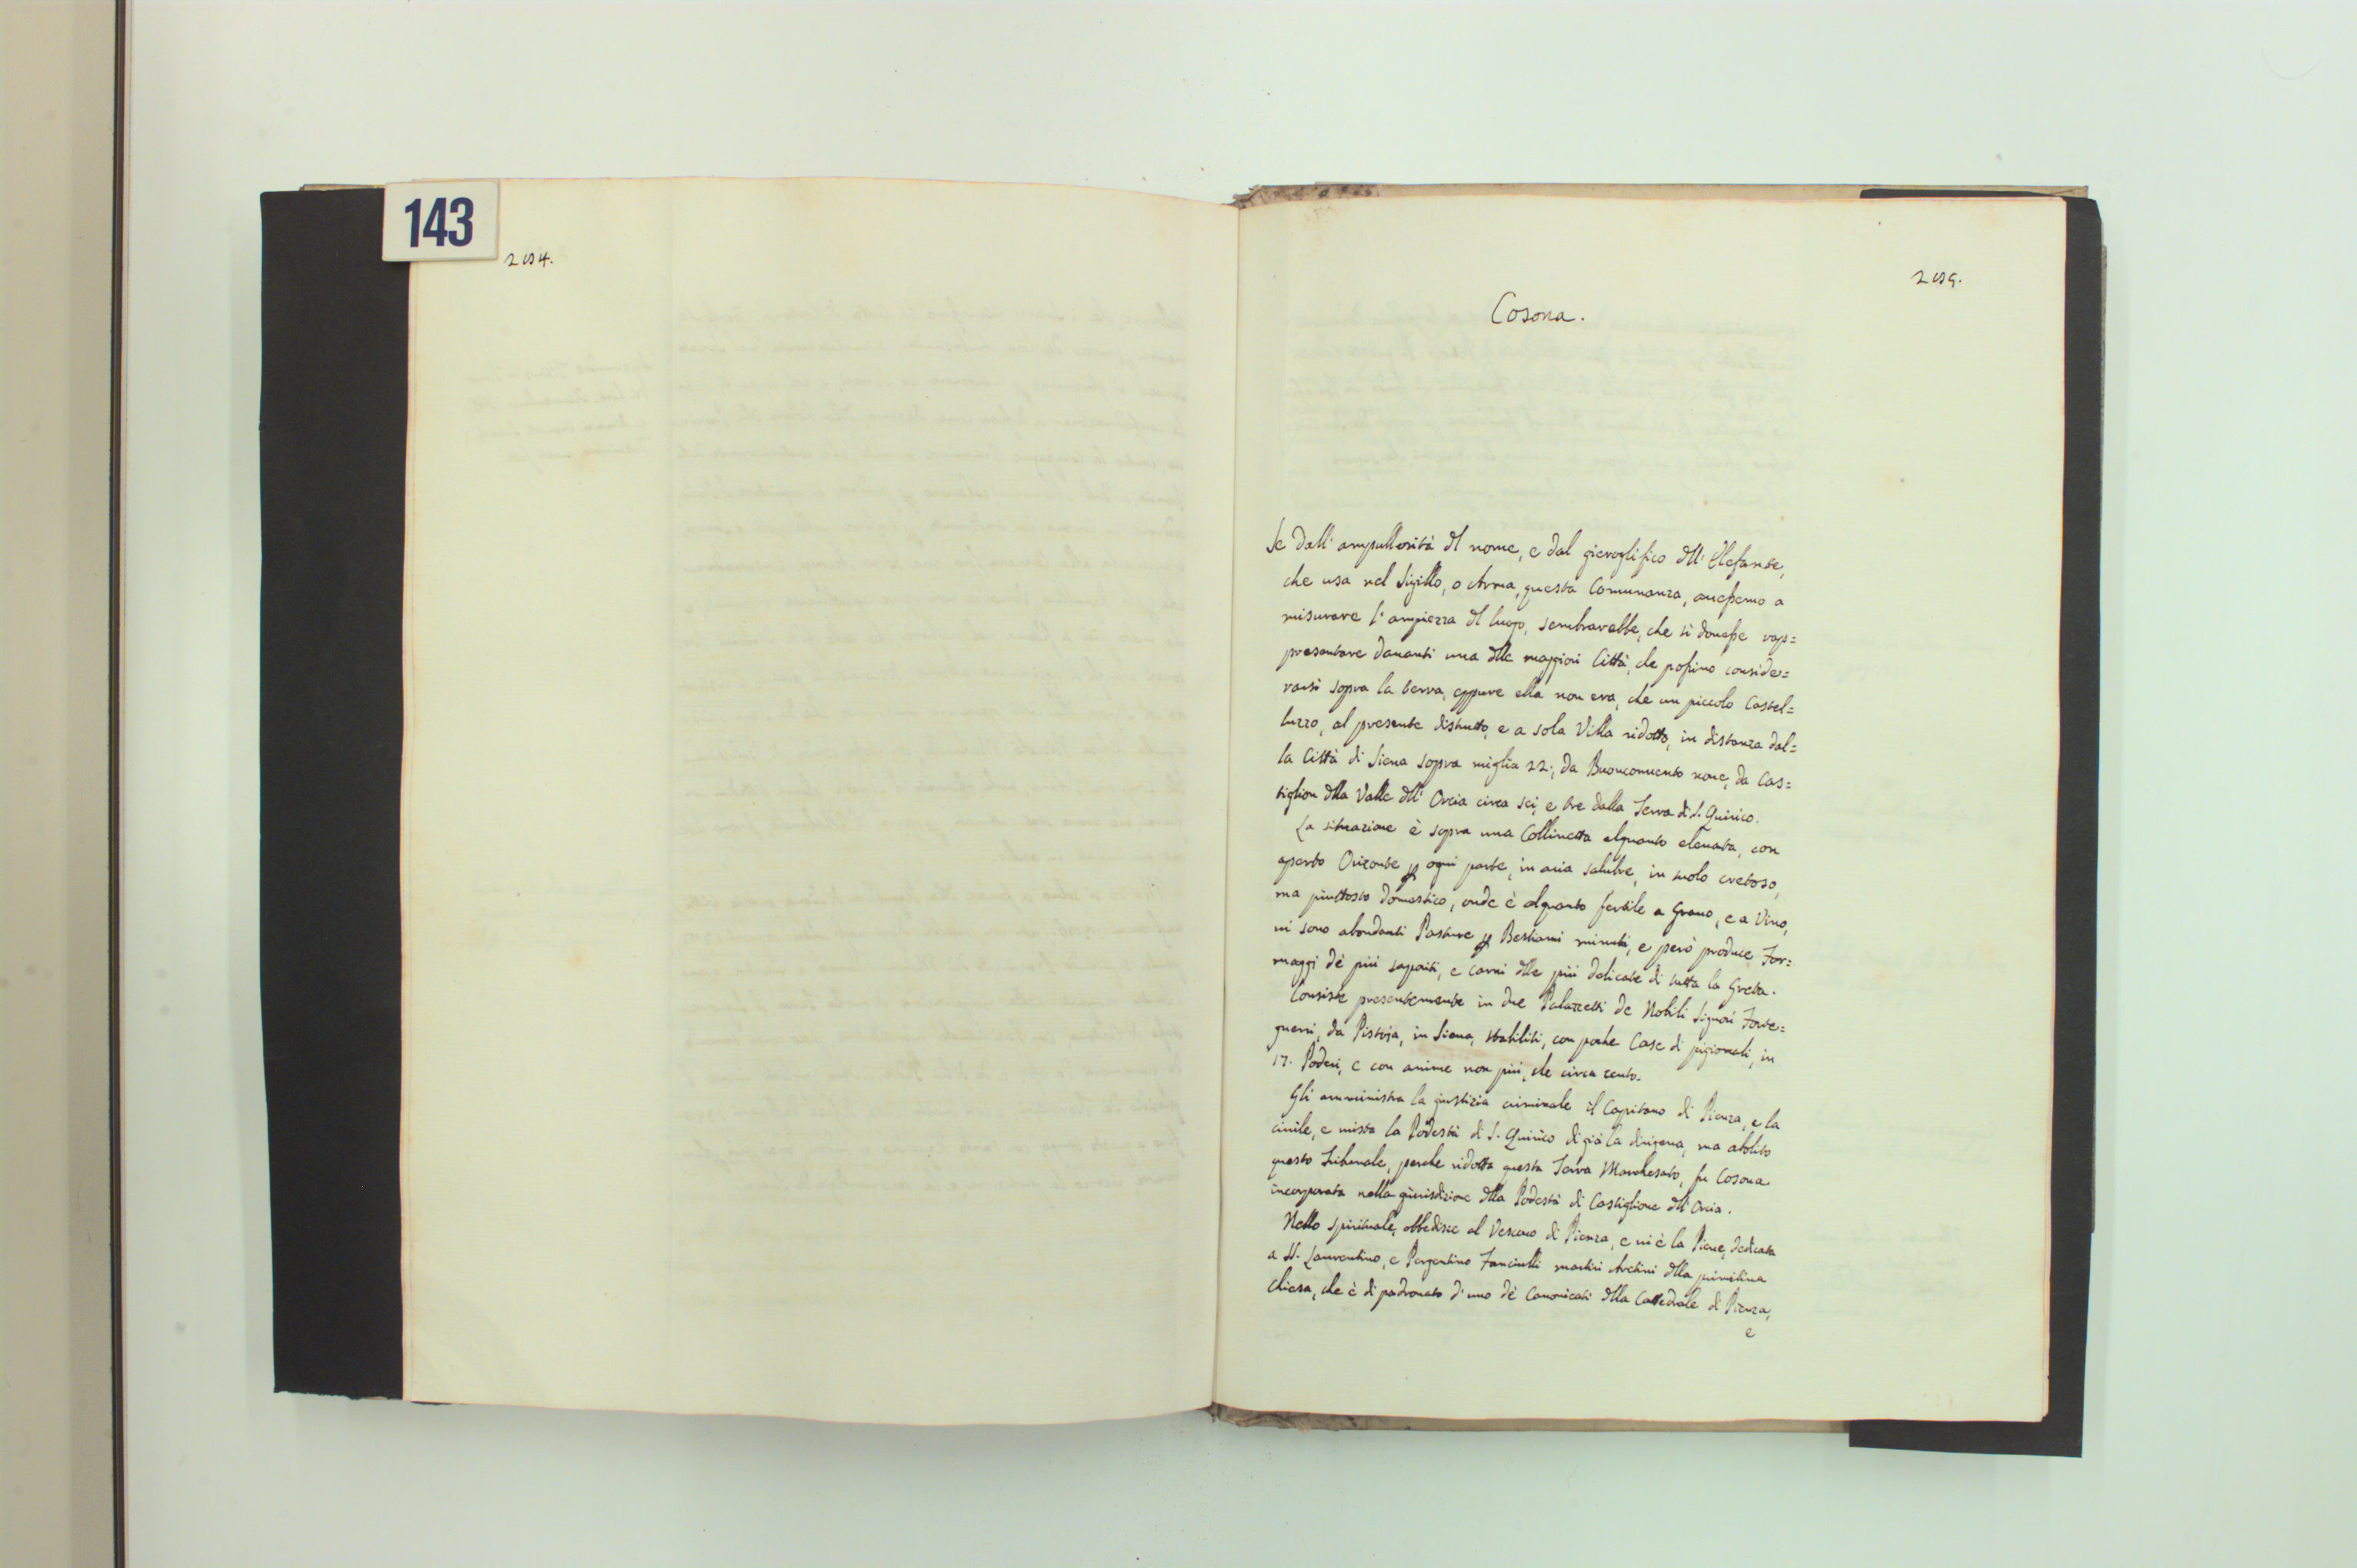 143
254.
255.
Cosona.
Se dall' ampullosità dl nome, e dal gieroglifico dll' Elefante,
che usa nel Sigillo, o Arma, questa Comunanza, auessemo a
misurare l' ampiezza dl luogo, sembrarebbe, che si douesse rap=
presentare dauanti una dlle maggiori Città, che possino conside=
rarsi sopra la terra, eppure ella non era, che un piccolo Castel=
luzzo, al presente distrutto, e a sola Villa ridotto, in distanza dal=
la Città di Siena sopra miglia 22., da Buonconuento noue, da Cas=
tiglion dlla Valle dll' Orcia circa sei, e tre dalla Terra di S. Quirico.
La situazione è sopra una Collinetta alquanto eleuata, con
aperto Orizonte p ogni parte, in aria salubre, in suolo cretoso,
ma piuttosto domestico, onde è alquanto fertile a Grano, e a Vino,
ui sono abondanti Pasture p Bestiami minuti, e però produce For=
maggi dè più saporiti, e carni dlle più delicate di tutta la Greta.
Consiste presentemente in due Palazzetti de Nobili Signori Forte=
guerri, da Pistoja, in Siena, stabiliti, con poche Case di pigionali, in
17. Poderi, e con anime non più, che circa cento.
Gli amministra la giustizia criminale il Capitano di Pienza, e la
ciuile, e mista la Podestà di S. Quirico di già la dirigeua, ma abolito
questo Tribunale, perche ridotta questa Terra Marchesato, fu Cosona
incorporata nella giurisdizione dlla Podestà di Castiglione dll' Orcia.
Nello spirituale, obbedisce al Vescouo di Pienza, e ui è la Pieue, dedicata
a SS. Laurentino, e Pergentino Fanciulli martiri Aretini dlla primitiua
chiesa, che è di padronato d' uno dè Canonicati dlla Cattedrale di Pienza,
e